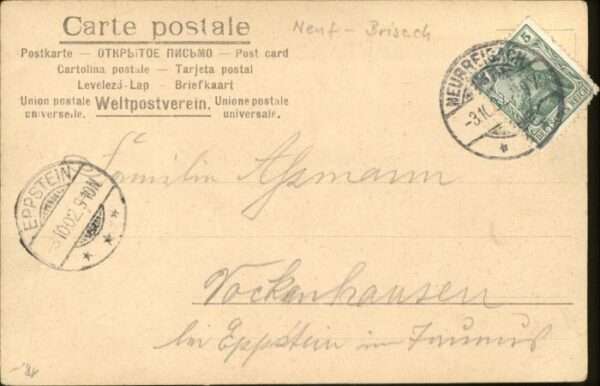 Carte postale
Neuf-Brisach
Postkarte — ОТКРЫТОЕ ПИСЬМО — Post card
Cartolina postale — Tarjeta postal
Levelezá-Lap — Briefkaart
Union postale universelle. Weltpostverein. Unione postale universale.
NEUBREISACH
-3.10.
5
EPPSTEIN
10.02.
Familie Aßmann
Vockenhausen
bei Eppstein im Taunus